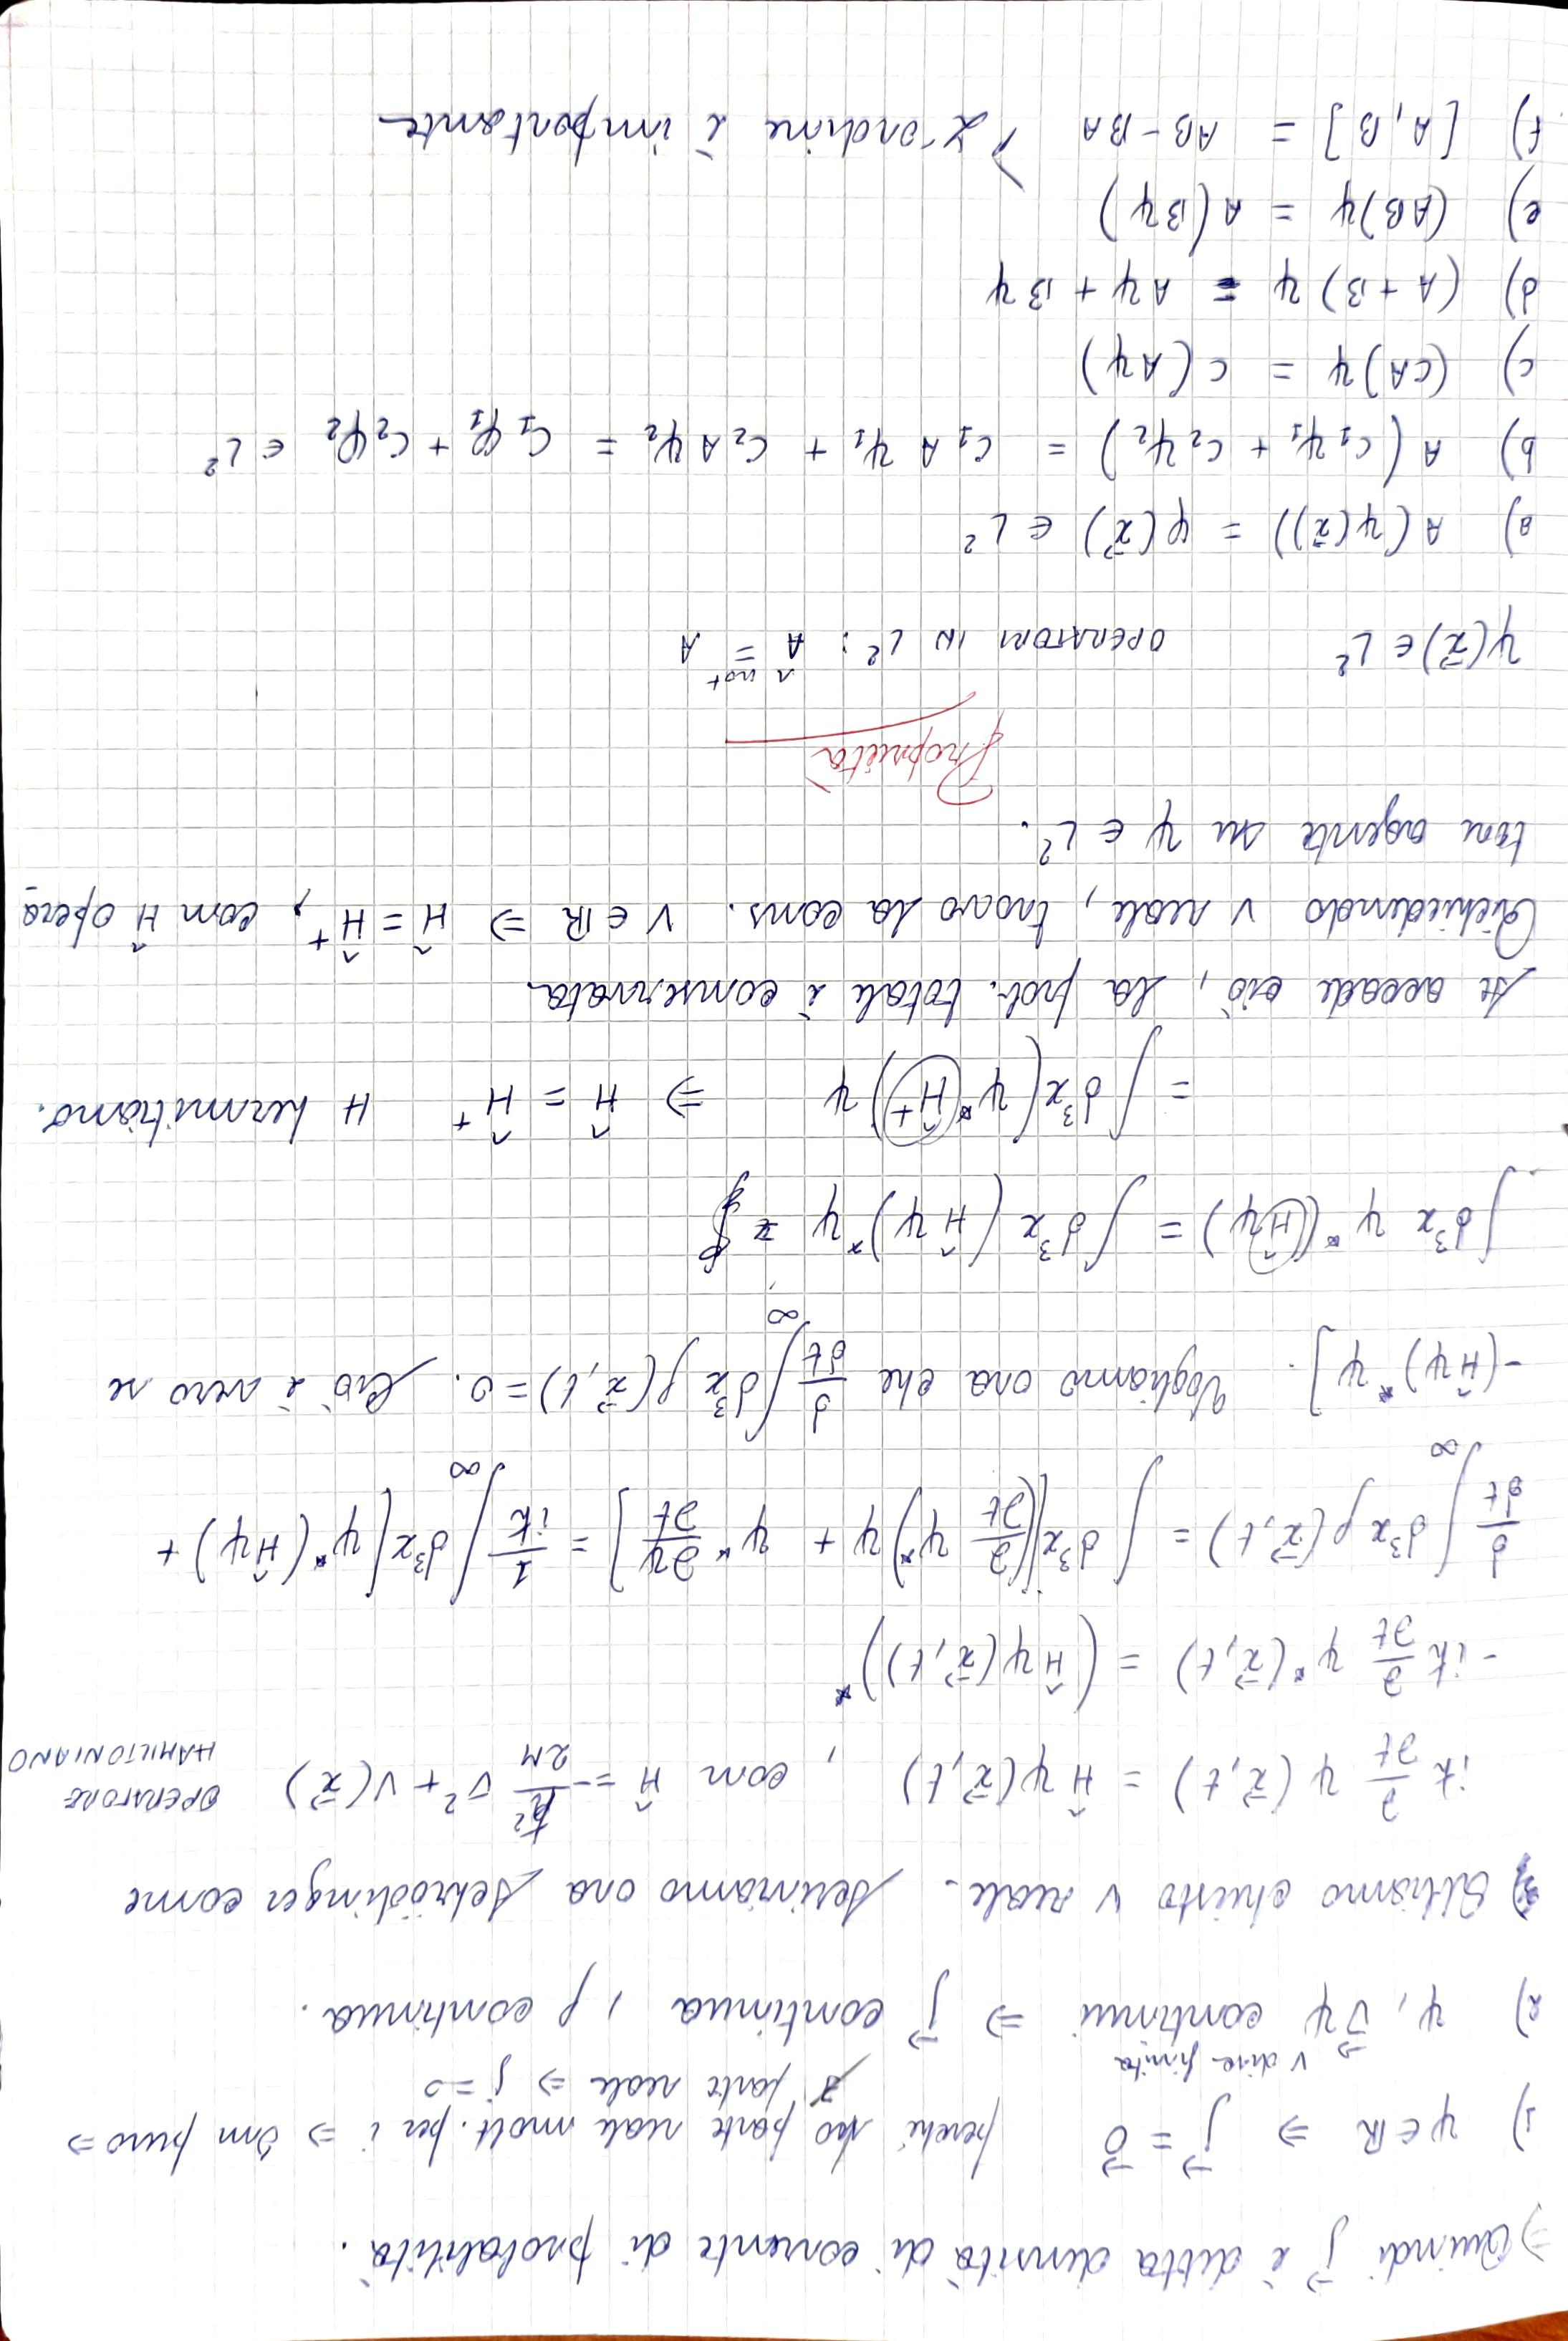 ⇒ Quindi j⃗ è detta densità di corrente di probabilità.
1) ψ ∈ ℝ ⇒ j⃗ = 0⃗ perché ho parte reale molt. per i ⇒ Im puro ⇒
∄ parte reale ⇒ j = 0
V dise finita
2) ψ, ∇⃗ψ continui ⇒ j⃗ continua, ρ continua.
3) Abbiamo chiesto V reale. Scriviamo ora Schrödinger come
iħ ∂/∂t ψ(x⃗,t) = Ĥψ(x⃗,t), con Ĥ = -ħ²/2M ∇² + V(x⃗) OPERATORE HAMILTONIANO
-iħ ∂/∂t ψ*(x⃗,t) = (Ĥψ(x⃗,t))*
d/dt ∫∞ d³x ρ(x⃗,t) = ∫ d³x [(∂/∂t ψ*)ψ + ψ* ∂ψ/∂t] = 1/iħ ∫∞ d³x [ψ*(Ĥψ) +
-(Ĥψ)*ψ]. Vogliamo ora che d/dt ∫∞ d³x ρ(x⃗,t) = 0. Ciò è vero se
∫ d³x ψ*(Ĥψ) = ∫ d³x (Ĥψ)*ψ =
= ∫ d³x (ψ* Ĥ⁺)ψ ⇒ Ĥ = Ĥ⁺ H hermitiano.
Se accade ciò, la prob. totale è conservata.
Richiedendo V reale, trovo la cons. V ∈ ℝ ⇒ Ĥ = Ĥ⁺, con Ĥ opera-
tore agente su ψ ∈ L².
Proprietà
ψ(x⃗) ∈ L² OPERATORI IN L²: Â not= A
a) A(ψ(x⃗)) = φ(x⃗) ∈ L²
b) A(c₁ψ₁ + c₂ψ₂) = c₁Aψ₁ + c₂Aψ₂ = c₁φ₁ + c₂φ₂ ∈ L²
c) (cA)ψ = c(Aψ)
d) (A+B)ψ = Aψ + Bψ
e) (AB)ψ = A(Bψ)
f) [A,B] = AB - BA > L'ordine è importante